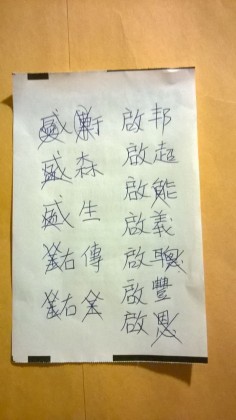 盛
盛森
盛生
鉐傳
鉐全
啟邦
啟超
啟能
啟義
啟聰
啟豐
啟恩